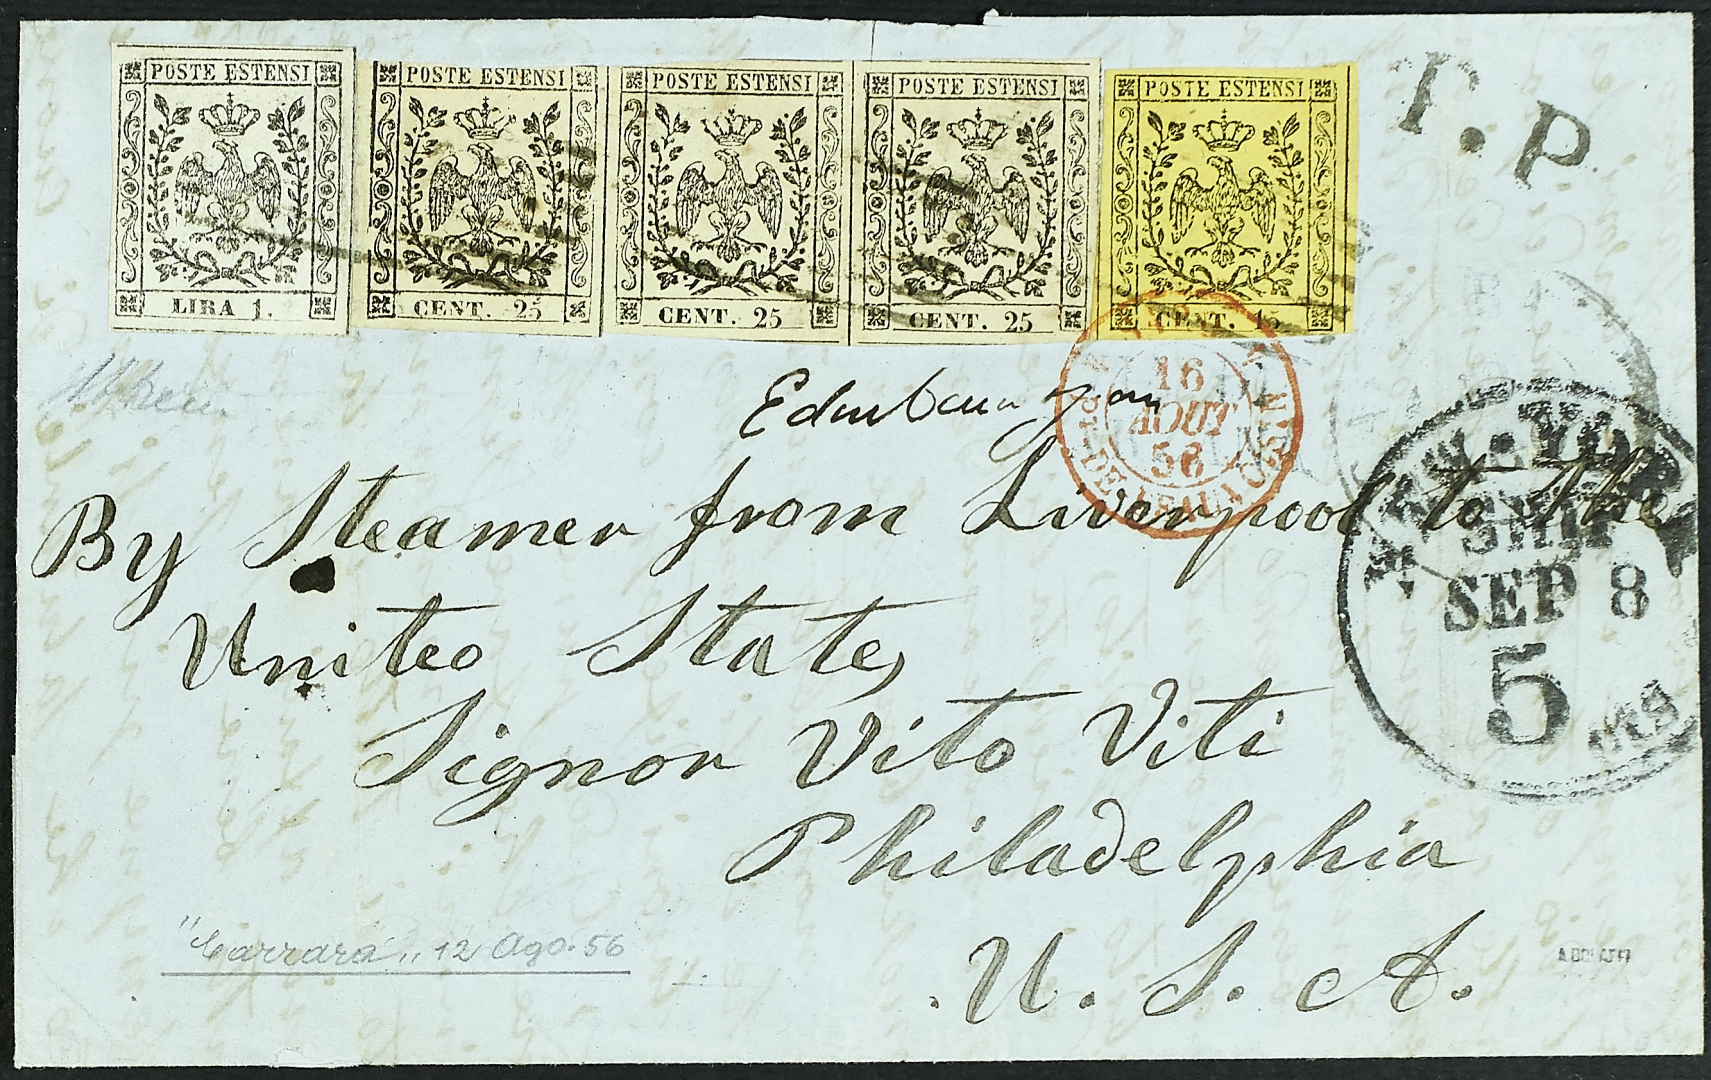 POSTE ESTENSI
LIRA 1.
POSTE ESTENSI
CENT. 25
POSTE ESTENSI
CENT. 25
POSTE ESTENSI
CENT. 25
POSTE ESTENSI
CENT. 15
P. P.
16
AOUT
56
PT-DE-BEAUVOISIN
By Steamer from Liverpool to the
United States
Signor Vito Viti
Philadelphia
U. S. A.
NEW-YORK
SHIP
SEP 8
5
CTS
"Carrara" 12 Ago. 56